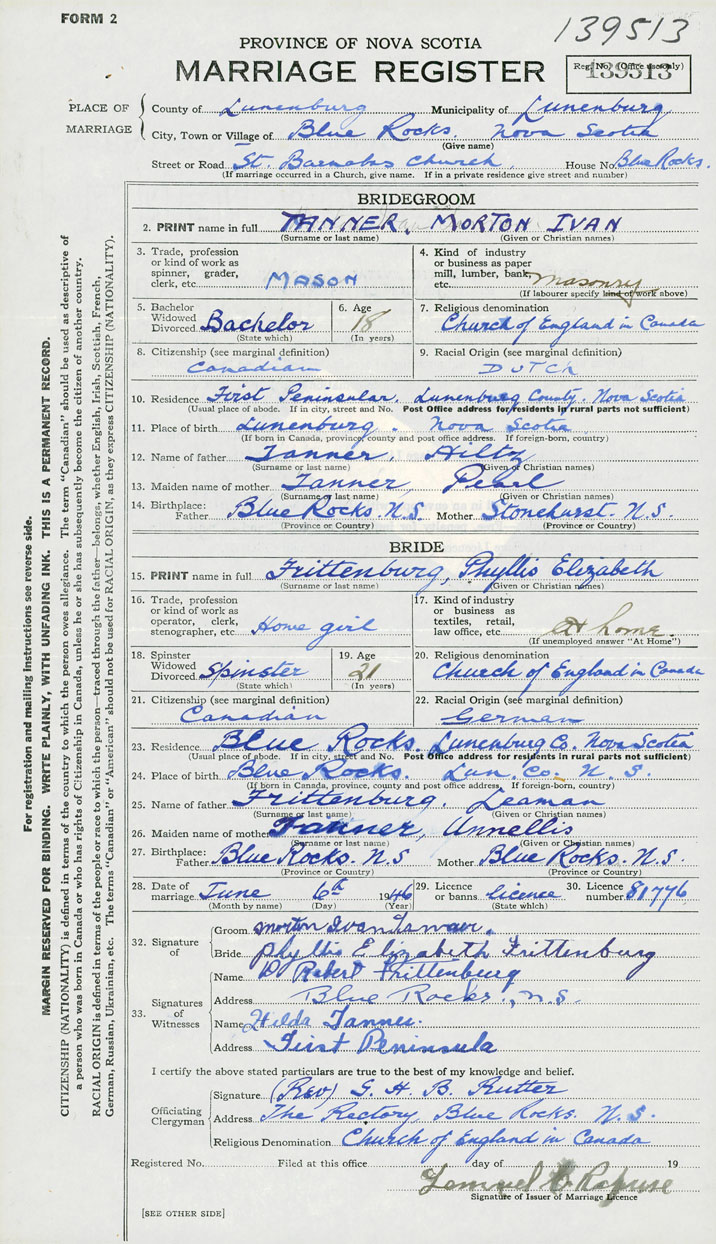 FORM 2
139513
PROVINCE OF NOVA SCOTIA
MARRIAGE REGISTER
Reg. No. (Office use only)
139513
PLACE OF MARRIAGE
County of Lunenburg Municipality of Lunenburg
City, Town or Village of Blue Rocks. Nova Scotia
(Give name)
Street or Road St. Barnabas Church House No. Blue Rocks.
(If marriage occurred in a Church, give name. If in a private residence give street and number)
BRIDEGROOM
2. PRINT name in full TANNER, MORTON IVAN
(Surname or last name) (Given or Christian names)
3. Trade, profession or kind of work as spinner, grader, clerk, etc. MASON
4. Kind of industry or business as paper mill, lumber, bank, etc. masonry
(If labourer specify kind of work above)
5. Bachelor Widowed Divorced Bachelor
(State which)
6. Age 18
(In years)
7. Religious denomination
Church of England in Canada
8. Citizenship (see marginal definition)
Canadian
9. Racial Origin (see marginal definition)
DUTCH
10. Residence First Peninsular. Lunenburg County. Nova Scotia
(Usual place of abode. If in city, street and No. Post Office address for residents in rural parts not sufficient)
11. Place of birth Lunenburg. Nova Scotia
(If born in Canada, province, county and post office address. If foreign-born, country)
12. Name of father Tanner, Hiltz
(Surname or last name) (Given or Christian names)
13. Maiden name of mother Tanner, Pearl
(Surname or last name) (Given or Christian names)
14. Birthplace: Father Blue Rocks. N.S. Mother Stonehurst. N.S.
(Province or Country) (Province or Country)
BRIDE
15. PRINT name in full Frittenburg, Phyllis Elizabeth
(Surname or last name) (Given or Christian names)
16. Trade, profession or kind of work as operator, clerk, stenographer, etc. Home girl
17. Kind of industry or business as textiles, retail, law office, etc. At home.
(If unemployed answer "At Home")
18. Spinster Widowed Divorced Spinster
(State which)
19. Age 21
(In years)
20. Religious denomination
Church of England in Canada
21. Citizenship (see marginal definition)
Canadian
22. Racial Origin (see marginal definition)
German
23. Residence Blue Rocks. Lunenburg Co. Nova Scotia
(Usual place of abode. If in city, street and No. Post Office address for residents in rural parts not sufficient)
24. Place of birth Blue Rocks. Lun. Co. N. S.
(If born in Canada, province, county and post office address. If foreign-born, country)
25. Name of father Frittenburg. Leaman
(Surname or last name) (Given or Christian names)
26. Maiden name of mother Tanner, Annellis
(Surname or last name) (Given or Christian names)
27. Birthplace: Father Blue Rocks. N.S Mother Blue Rocks. N.S
(Province or Country) (Province or Country)
28. Date of marriage June 6th 1946
(Month by name) (Day) (Year)
29. Licence or banns licence
(State which)
30. Licence number 81776
32. Signature of
Groom Morton Ivan Tanner.
Bride Phyllis Elizabeth Frittenburg
33. Signatures of Witnesses
Name D. Robert Frittenburg
Address Blue Rocks., N.S.
Name Hilda Tanner.
Address First Peninsula
I certify the above stated particulars are true to the best of my knowledge and belief.
Officiating Clergyman
Signature (Rev) G. H. B. Rutter
Address The Rectory, Blue Rocks. N. S.
Religious Denomination Church of England in Canada
Registered No. Filed at this office day of 19
Lemuel
Signature of Issuer of Marriage Licence
[SEE OTHER SIDE]
For registration and mailing instructions see reverse side.
MARGIN RESERVED FOR BINDING. WRITE PLAINLY, WITH UNFADING INK. THIS IS A PERMANENT RECORD.
CITIZENSHIP (NATIONALITY) is defined in terms of the country to which the person owes allegiance. The term "Canadian" should be used as descriptive of
a person who was born in Canada or who has rights of Citizenship in Canada, unless he or she has subsequently become the citizen of another country.
RACIAL ORIGIN is defined in terms of the people or race to which the person—traced through the father—belongs, whether English, Irish, Scottish, French,
German, Russian, Ukrainian, etc. The terms "Canadian" or "American" should not be used for RACIAL ORIGIN, as they express CITIZENSHIP (NATIONALITY).